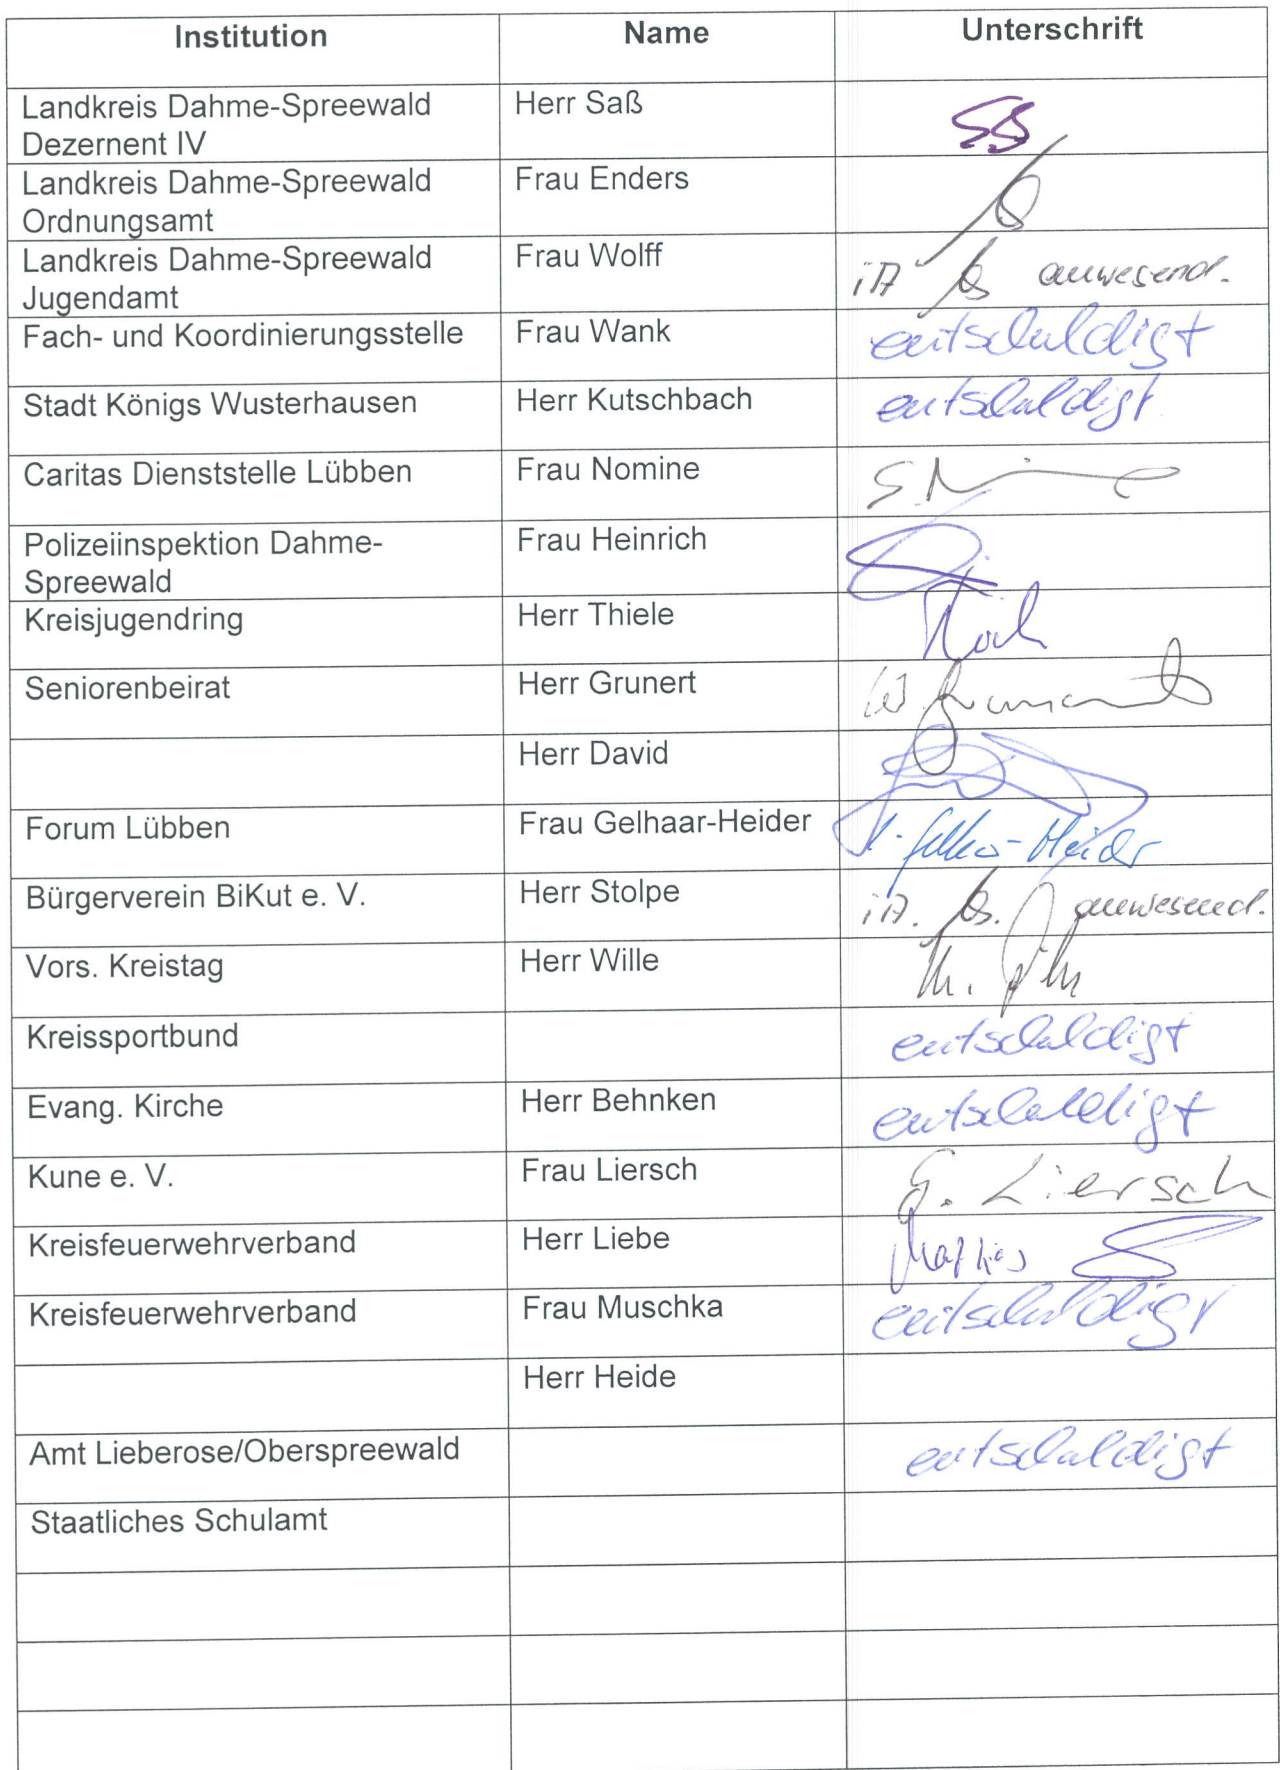 Institution Name Unterschrift
Landkreis Dahme-Spreewald Herr Saß
Dezernent IV
Landkreis Dahme-Spreewald Frau Enders
Ordnungsamt
Landkreis Dahme-Spreewald Frau Wolff iA anwesend.
Jugendamt
Fach- und Koordinierungsstelle Frau Wank entschuldigt
Stadt Königs Wusterhausen Herr Kutschbach entschuldigt
Caritas Dienststelle Lübben Frau Nomine
Polizeiinspektion Dahme- Frau Heinrich
Spreewald
Kreisjugendring Herr Thiele
Seniorenbeirat Herr Grunert W.
Herr David
Forum Lübben Frau Gelhaar-Heider
Bürgerverein BiKut e. V. Herr Stolpe iA. anwesend.
Vors. Kreistag Herr Wille
Kreissportbund entschuldigt
Evang. Kirche Herr Behnken entschuldigt
Kune e. V. Frau Liersch G. Liersch
Kreisfeuerwehrverband Herr Liebe
Kreisfeuerwehrverband Frau Muschka entschuldigt
Herr Heide
Amt Lieberose/Oberspreewald entschuldigt
Staatliches Schulamt